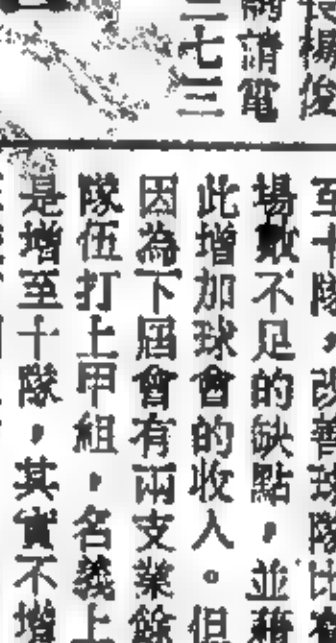 楊俊
請電
七三
至十隊，改善球隊比
場數不足的缺點，並藉
此增加球會的收入。但
因為下屆會有兩支業餘
隊伍打上甲組，名義上
是增至十隊，其實不增